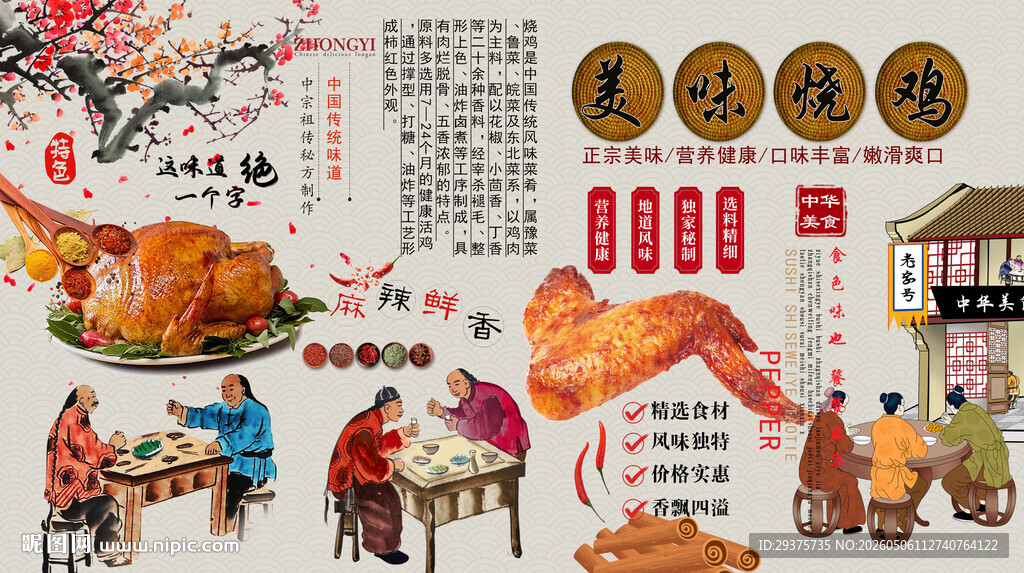 ZHONGYI
Chinese delicious longan
特色
这味道绝
一个字
中国传统味道
中宗祖传秘方制作
烧鸡是中国传统风味菜肴，属豫菜
、鲁菜、皖菜及东北菜系，以鸡肉
为主料，配以花椒、小茴香、丁香
等二十余种香料，经宰杀褪毛、整
形上色、油炸卤煮等工序制成，具
有肉烂脱骨、五香浓郁的特点。
原料多选用7—24个月的健康活鸡
，通过撑型、打糖、油炸等工艺形
成柿红色外观。
麻辣鲜香
美味烧鸡
正宗美味/营养健康/口味丰富/嫩滑爽口
营养健康
地道风味
独家秘制
选料精细
中华
美食
食色味也
SUSHI SHISEWEIYE
PEPPER
精选食材
风味独特
价格实惠
香飘四溢
老字号
中华美
昵图网 www.nipic.com
ID:29375735 NO:20260506112740764122